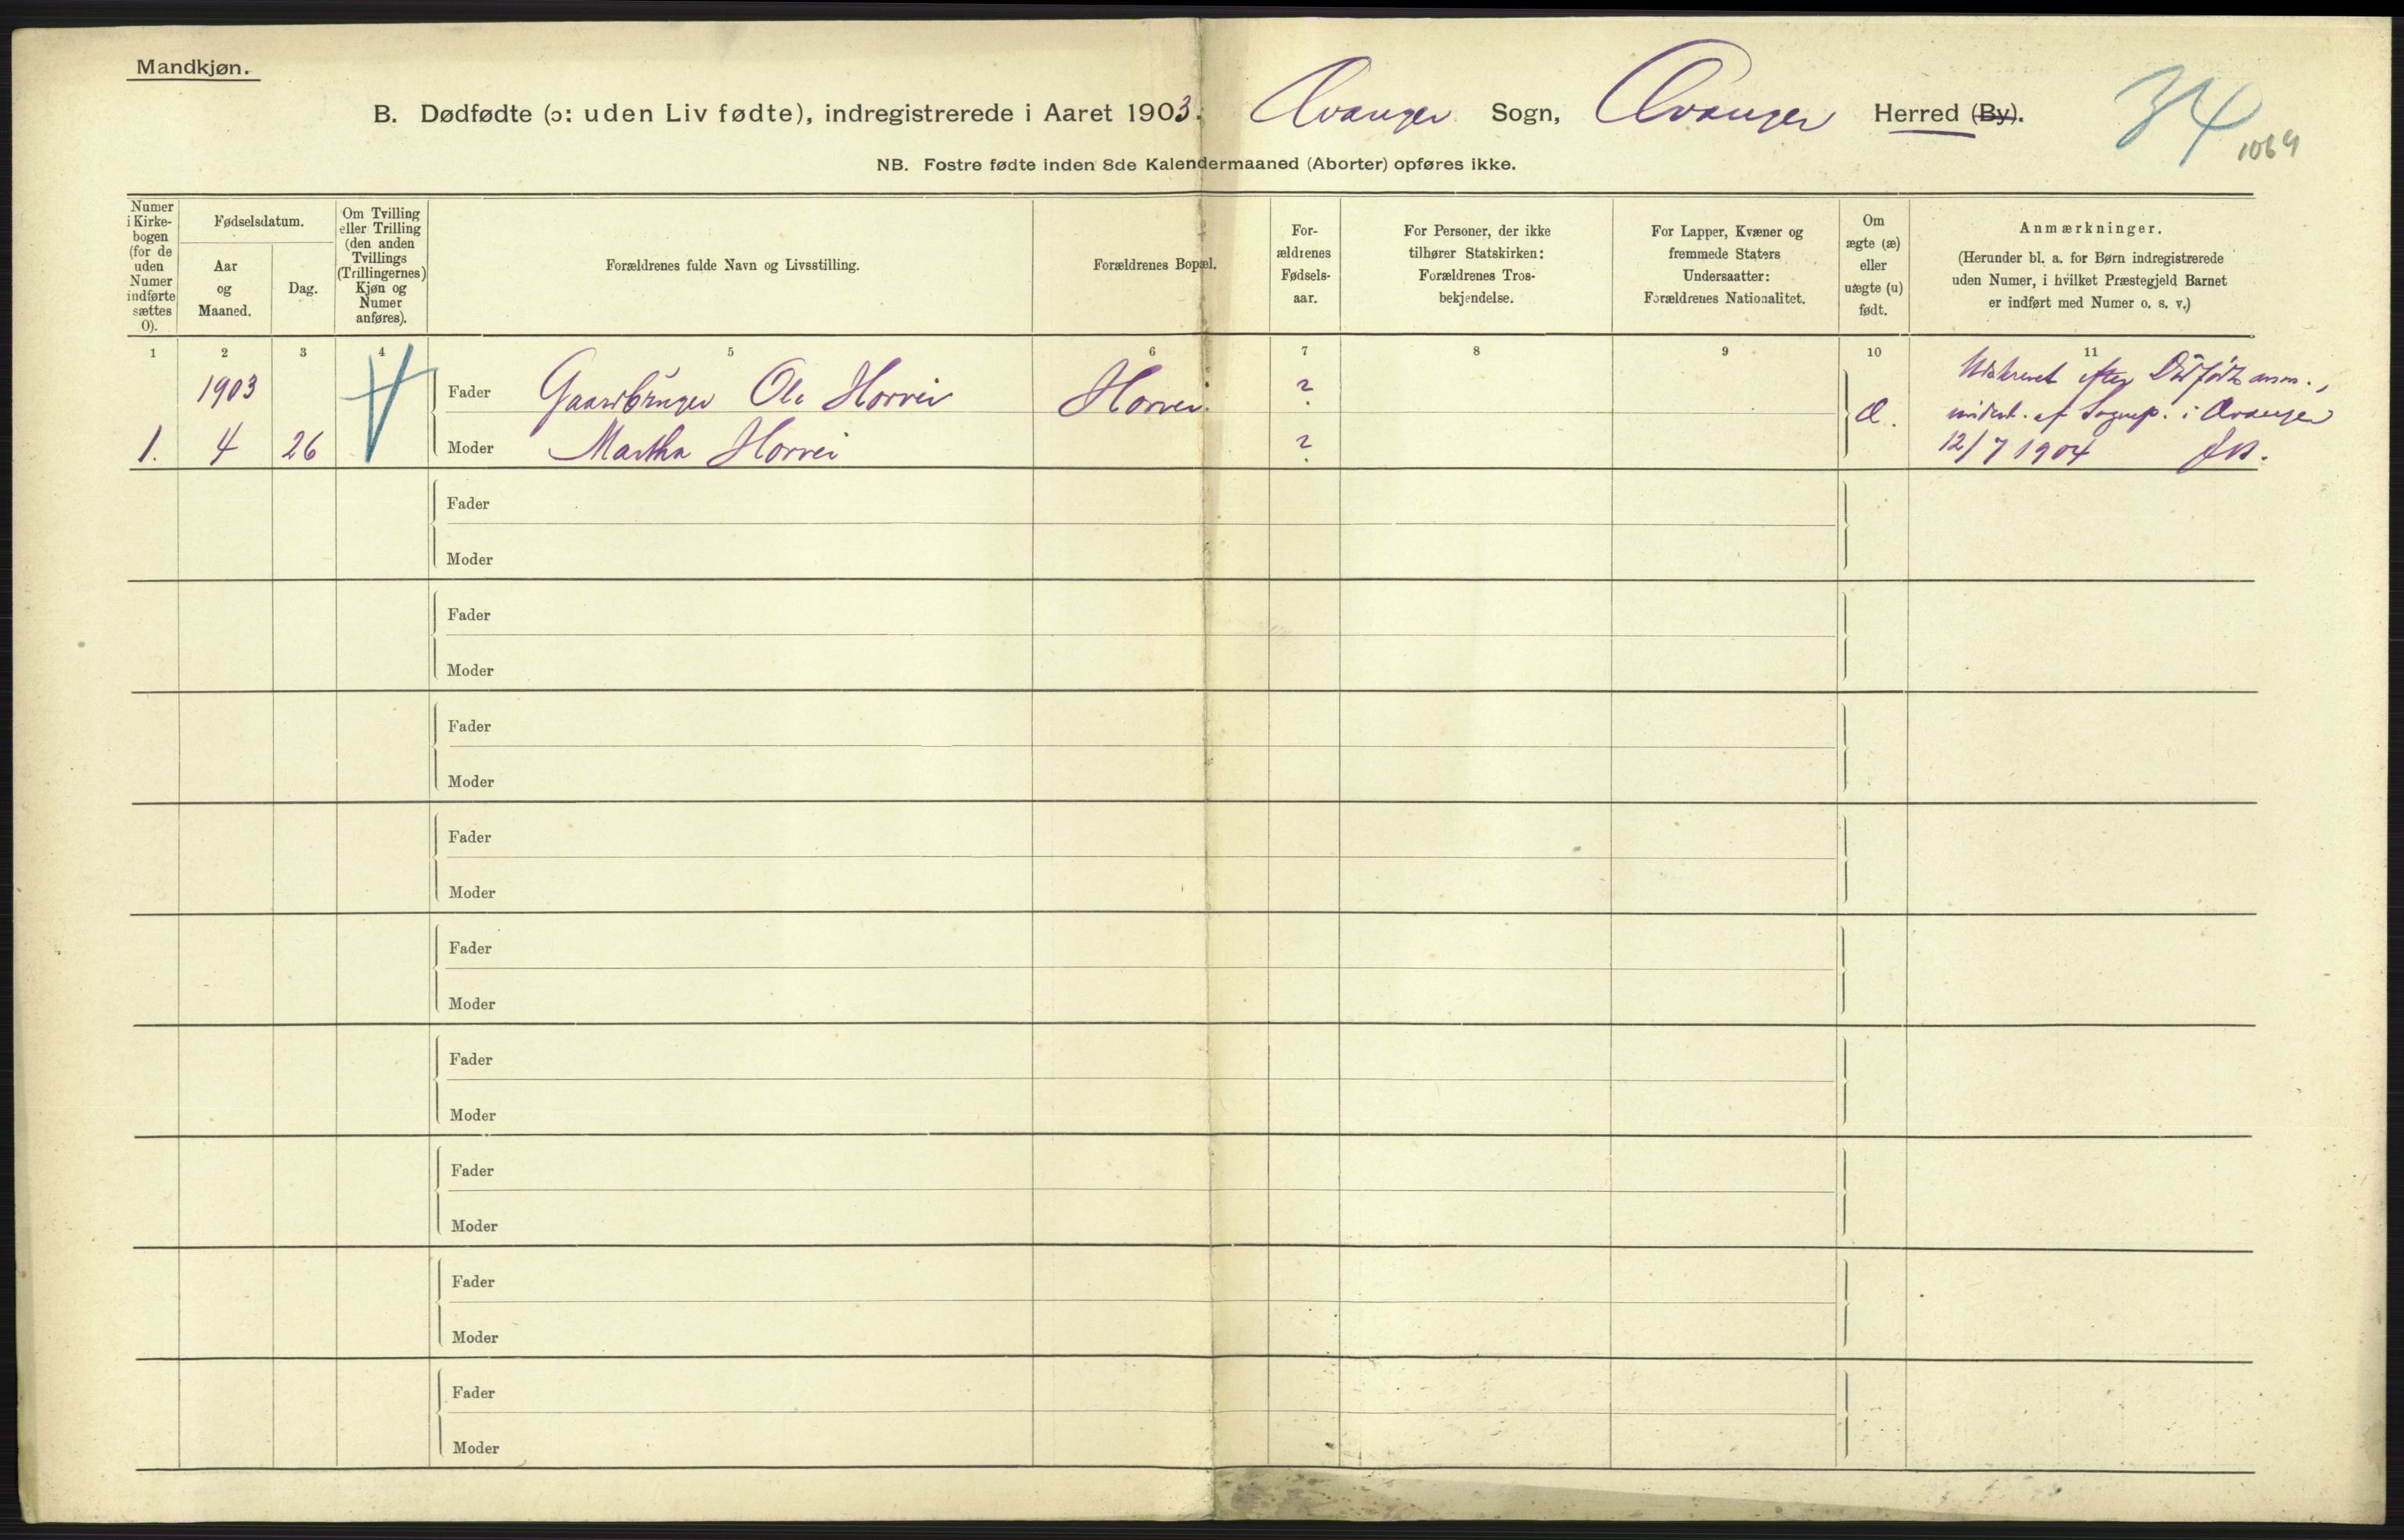 Mandkjøn.
B. Dødfødte (ɔ: uden Liv fødte), indregistrerede i Aaret 1903. Ævanger Sogn, Ævanger Herred (By).
34
1064
NB. Fostre fødte inden 8de Kalendermaaned (Aborter) opføres ikke.
Numer i Kirke- bogen (for de uden Numer indførte sættes 0).
Fødselsdatum.
Aar og Maaned.
Dag.
Om Tvilling eller Trilling (den anden Tvillings (Trillingernes) Kjøn og Numer anføres).
Forældrenes fulde Navn og Livsstilling.
Forældrenes Bopæl.
For- ældrenes Fødsels- aar.
For Personer, der ikke tilhører Statskirken: Forældrenes Tros- bekjendelse.
For Lapper, Kvæner og fremmede Staters Undersaatter: Forældrenes Nationalitet.
Om ægte (æ) eller uægte (u) født.
Anmærkninger.
(Herunder bl. a. for Børn indregistrerede uden Numer, i hvilket Præstegjeld Barnet er indført med Numer o. s. v.)
1 2 3 4 5 6 7 8 9 10 11
1903 Fader Gaardbruger Ole Horvei Horvei ? Æ. Udskrevet efter Dødfødtanm.,
1. 4 26 Moder Martha Horvei ?
indsat. af Sognep. i Ævanger
12/7 1904
Fader
Moder
Fader
Moder
Fader
Moder
Fader
Moder
Fader
Moder
Fader
Moder
Fader
Moder
Fader
Moder
Fader
Moder